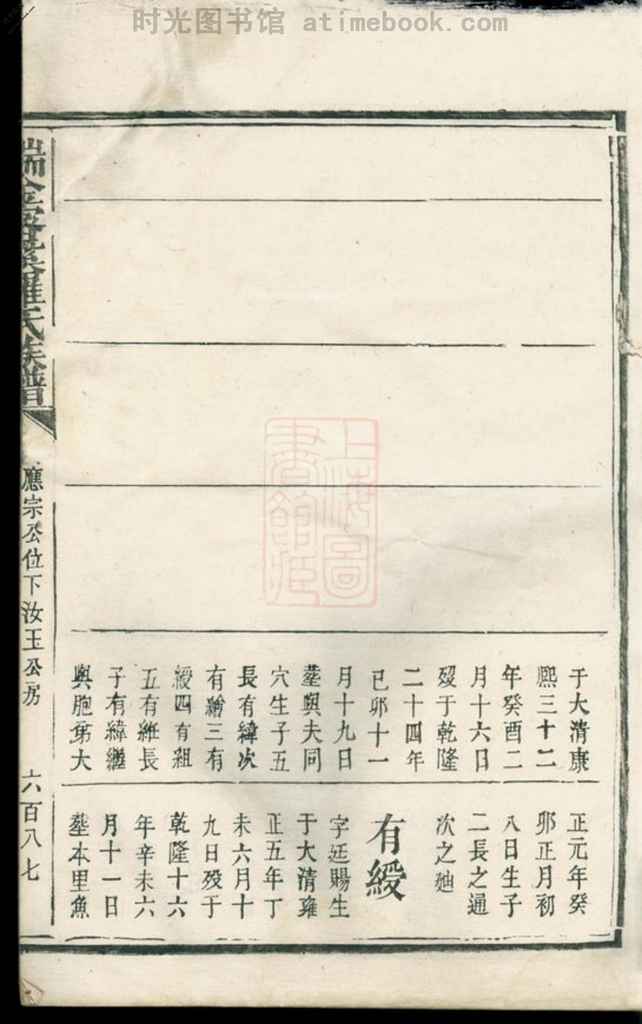 时光图书馆 atimebook.com
于大清康
熙三十二
年癸酉二
月十六日
歿于乾隆
二十四年
己卯十一
月十九日
塟與夫同
穴生子五
長有緯次
有繪三有
綬四有組
五有維長
子有緯繼
與胞弟大
正元年癸
卯正月初
八日生子
二長之通
次之迪
有綬
字廷賜生
于大清雍
正五年丁
未六月十
九日歿于
乾隆十六
年辛未六
月十一日
塟本里魚
羅氏族譜
應宗公位下汝玉公房
六百八七
上海圖書館藏